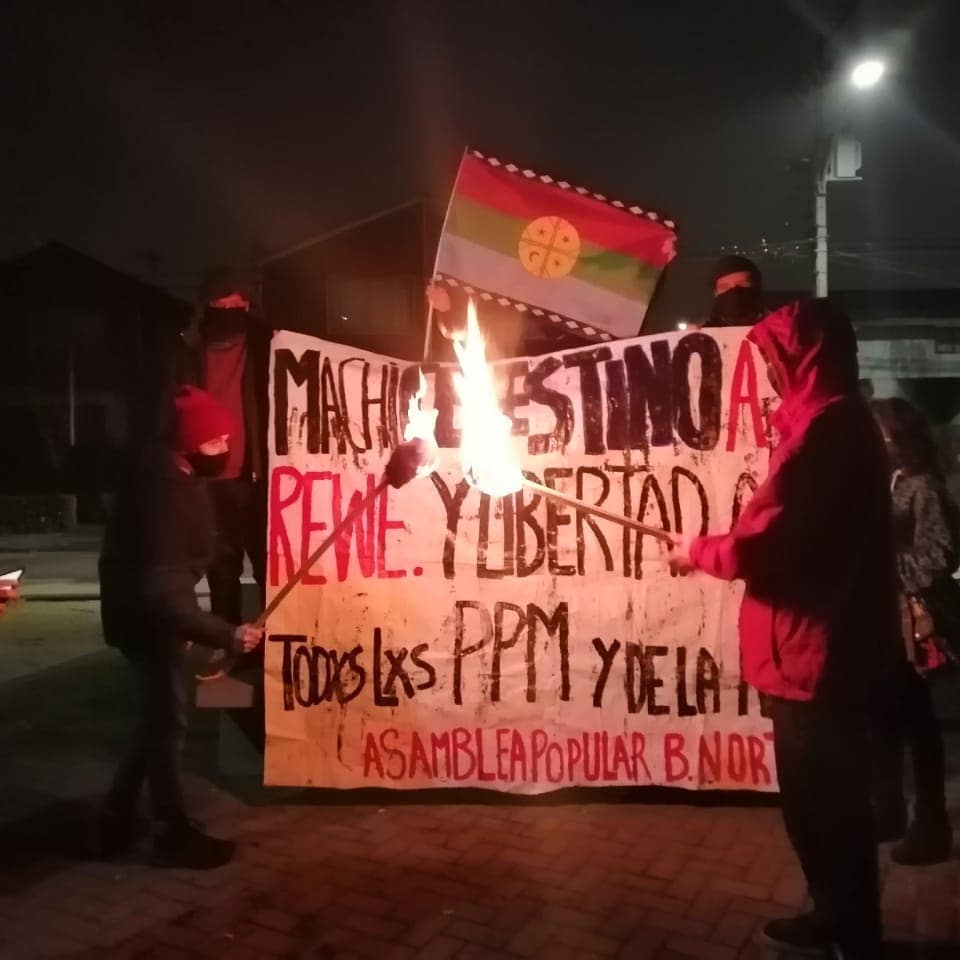 MACHI CELESTINO A
REWE. Y LIBERTAD
TODXS LXS PPM Y DE LA
ASAMBLEA POPULAR B. NORT